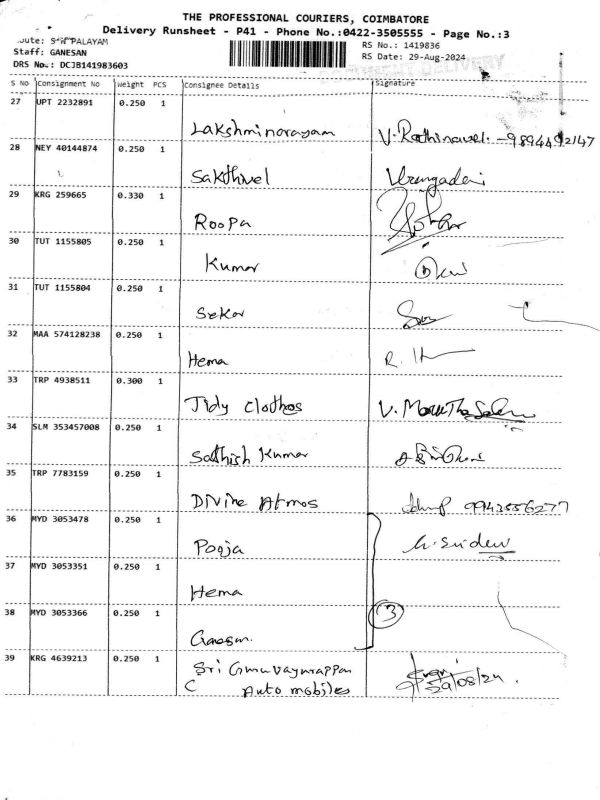 THE PROFESSIONAL COURIERS, COIMBATORE
Delivery Runsheet - P41 - Phone No.:0422-3505555 - Page No.:3
PALAYAM
RS No.: 1419836
Staff: GANESAN
RS Date: 29-Aug-2024
DRS No.: DCJB141983603
S No Consignment No Weight PCS Consignee Details Signature
27 UPT 2232891 0.250 1
Lakshminarayam V. Rathinavel. -
28 NEY 40144874 0.250 1
Sakthivel
29 KRG 259665 0.330 1
Roopa
30 TUT 1155805 0.250 1
Kumar
31 TUT 1155804 0.250 1
Sekar
32 MAA 574128238 0.250 1
Hema R.
33 TRP 4938511 0.300 1
Tidy Clothes V.
34 SLM 353457008 0.250 1
Sathish Kumar
35 TRP 7783159 0.250 1
Divine Atmos 9943556277
36 MYD 3053478 0.250 1
Pooja
37 MYD 3053351 0.250 1
Hema
38 MYD 3053366 0.250 1
3
Ganesan.
39 KRG 4639213 0.250 1
Sri Guruvayurappan
Auto mobiles 29/08/24.